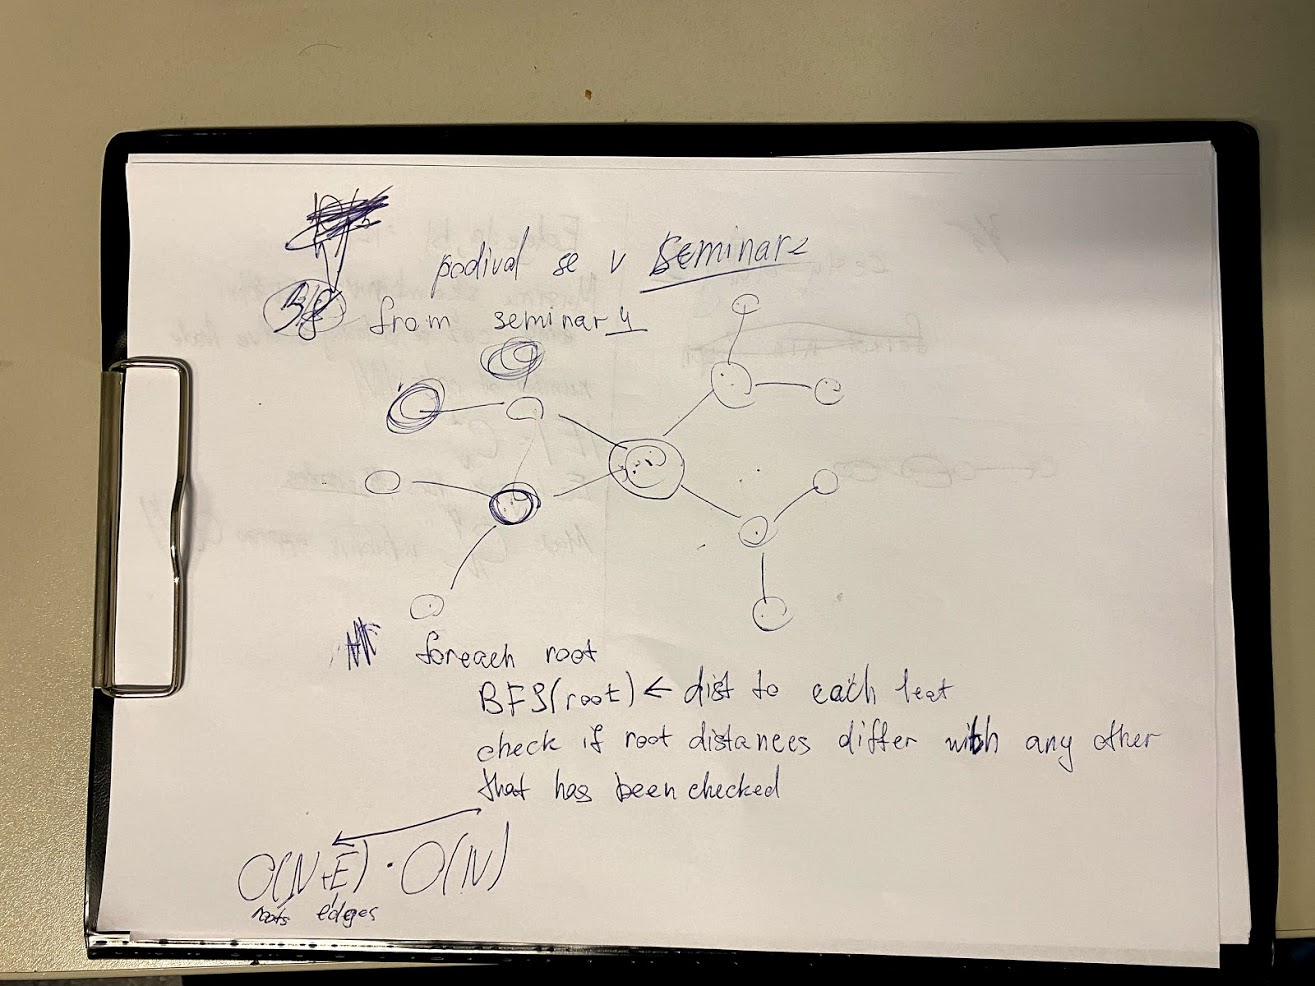 podival se v seminare
from seminary
foreach root
BFS(root) ← dist to each leat
check if root distances differ with any other
that has been checked
O(N+E) · O(N)
roots edges